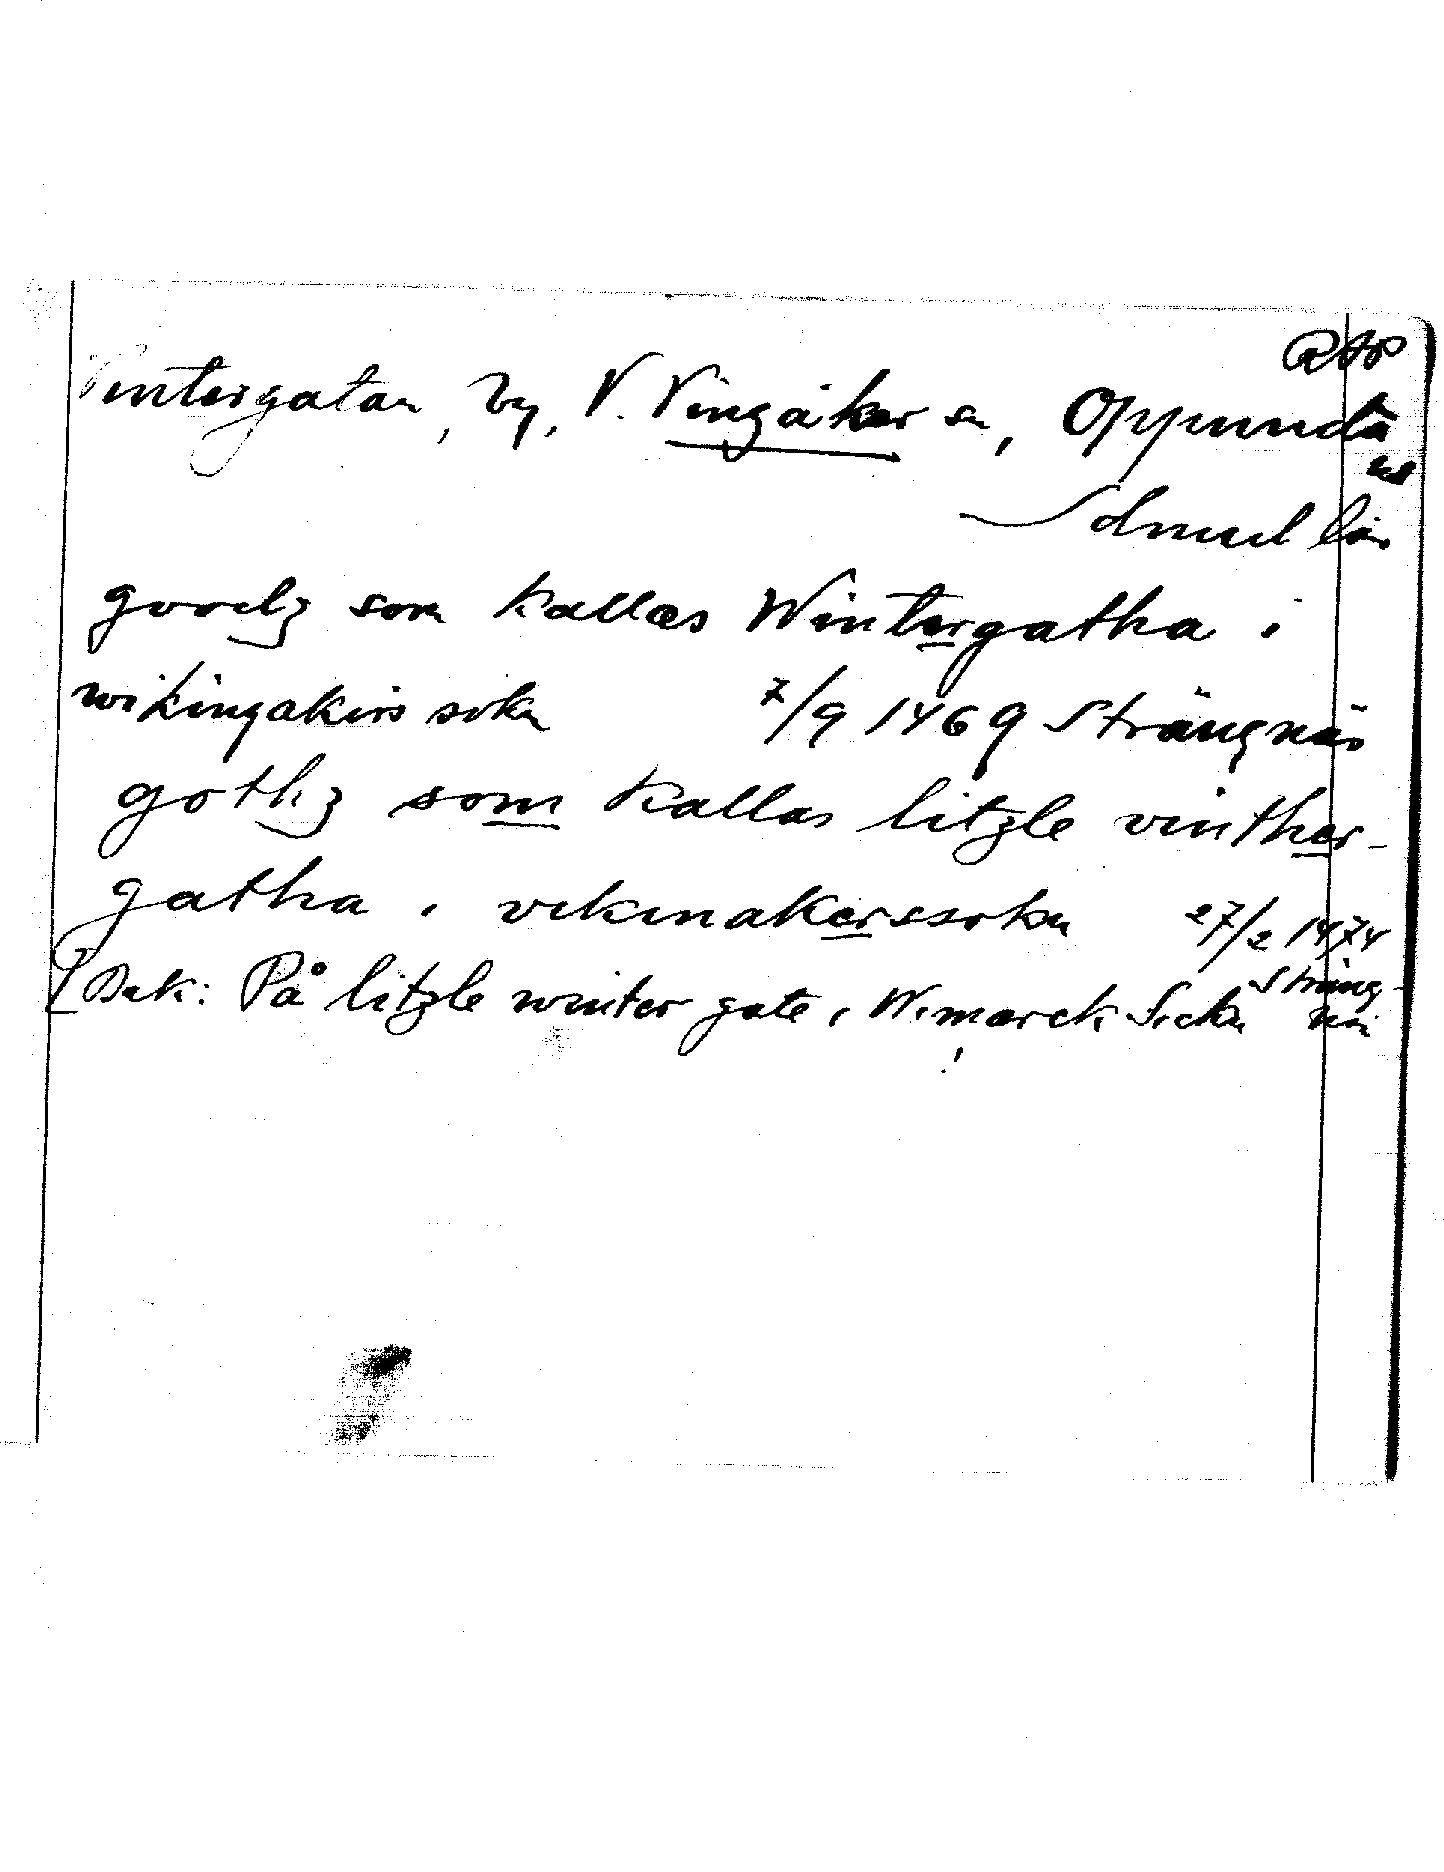 RAP
Vintergatan, by, V. Vingåker sn, Oppunda
hd
Södml län
goodz som kallas Wintergatha i
wikingakirs sokn 7/9 1469 Strängnäs
gothz som kallas litzle vinther-
gatha i vikinakerssokn 27/2 1474
Sträng-
[Bak: På litzle winter gate i Wimarck Sockn näs
!